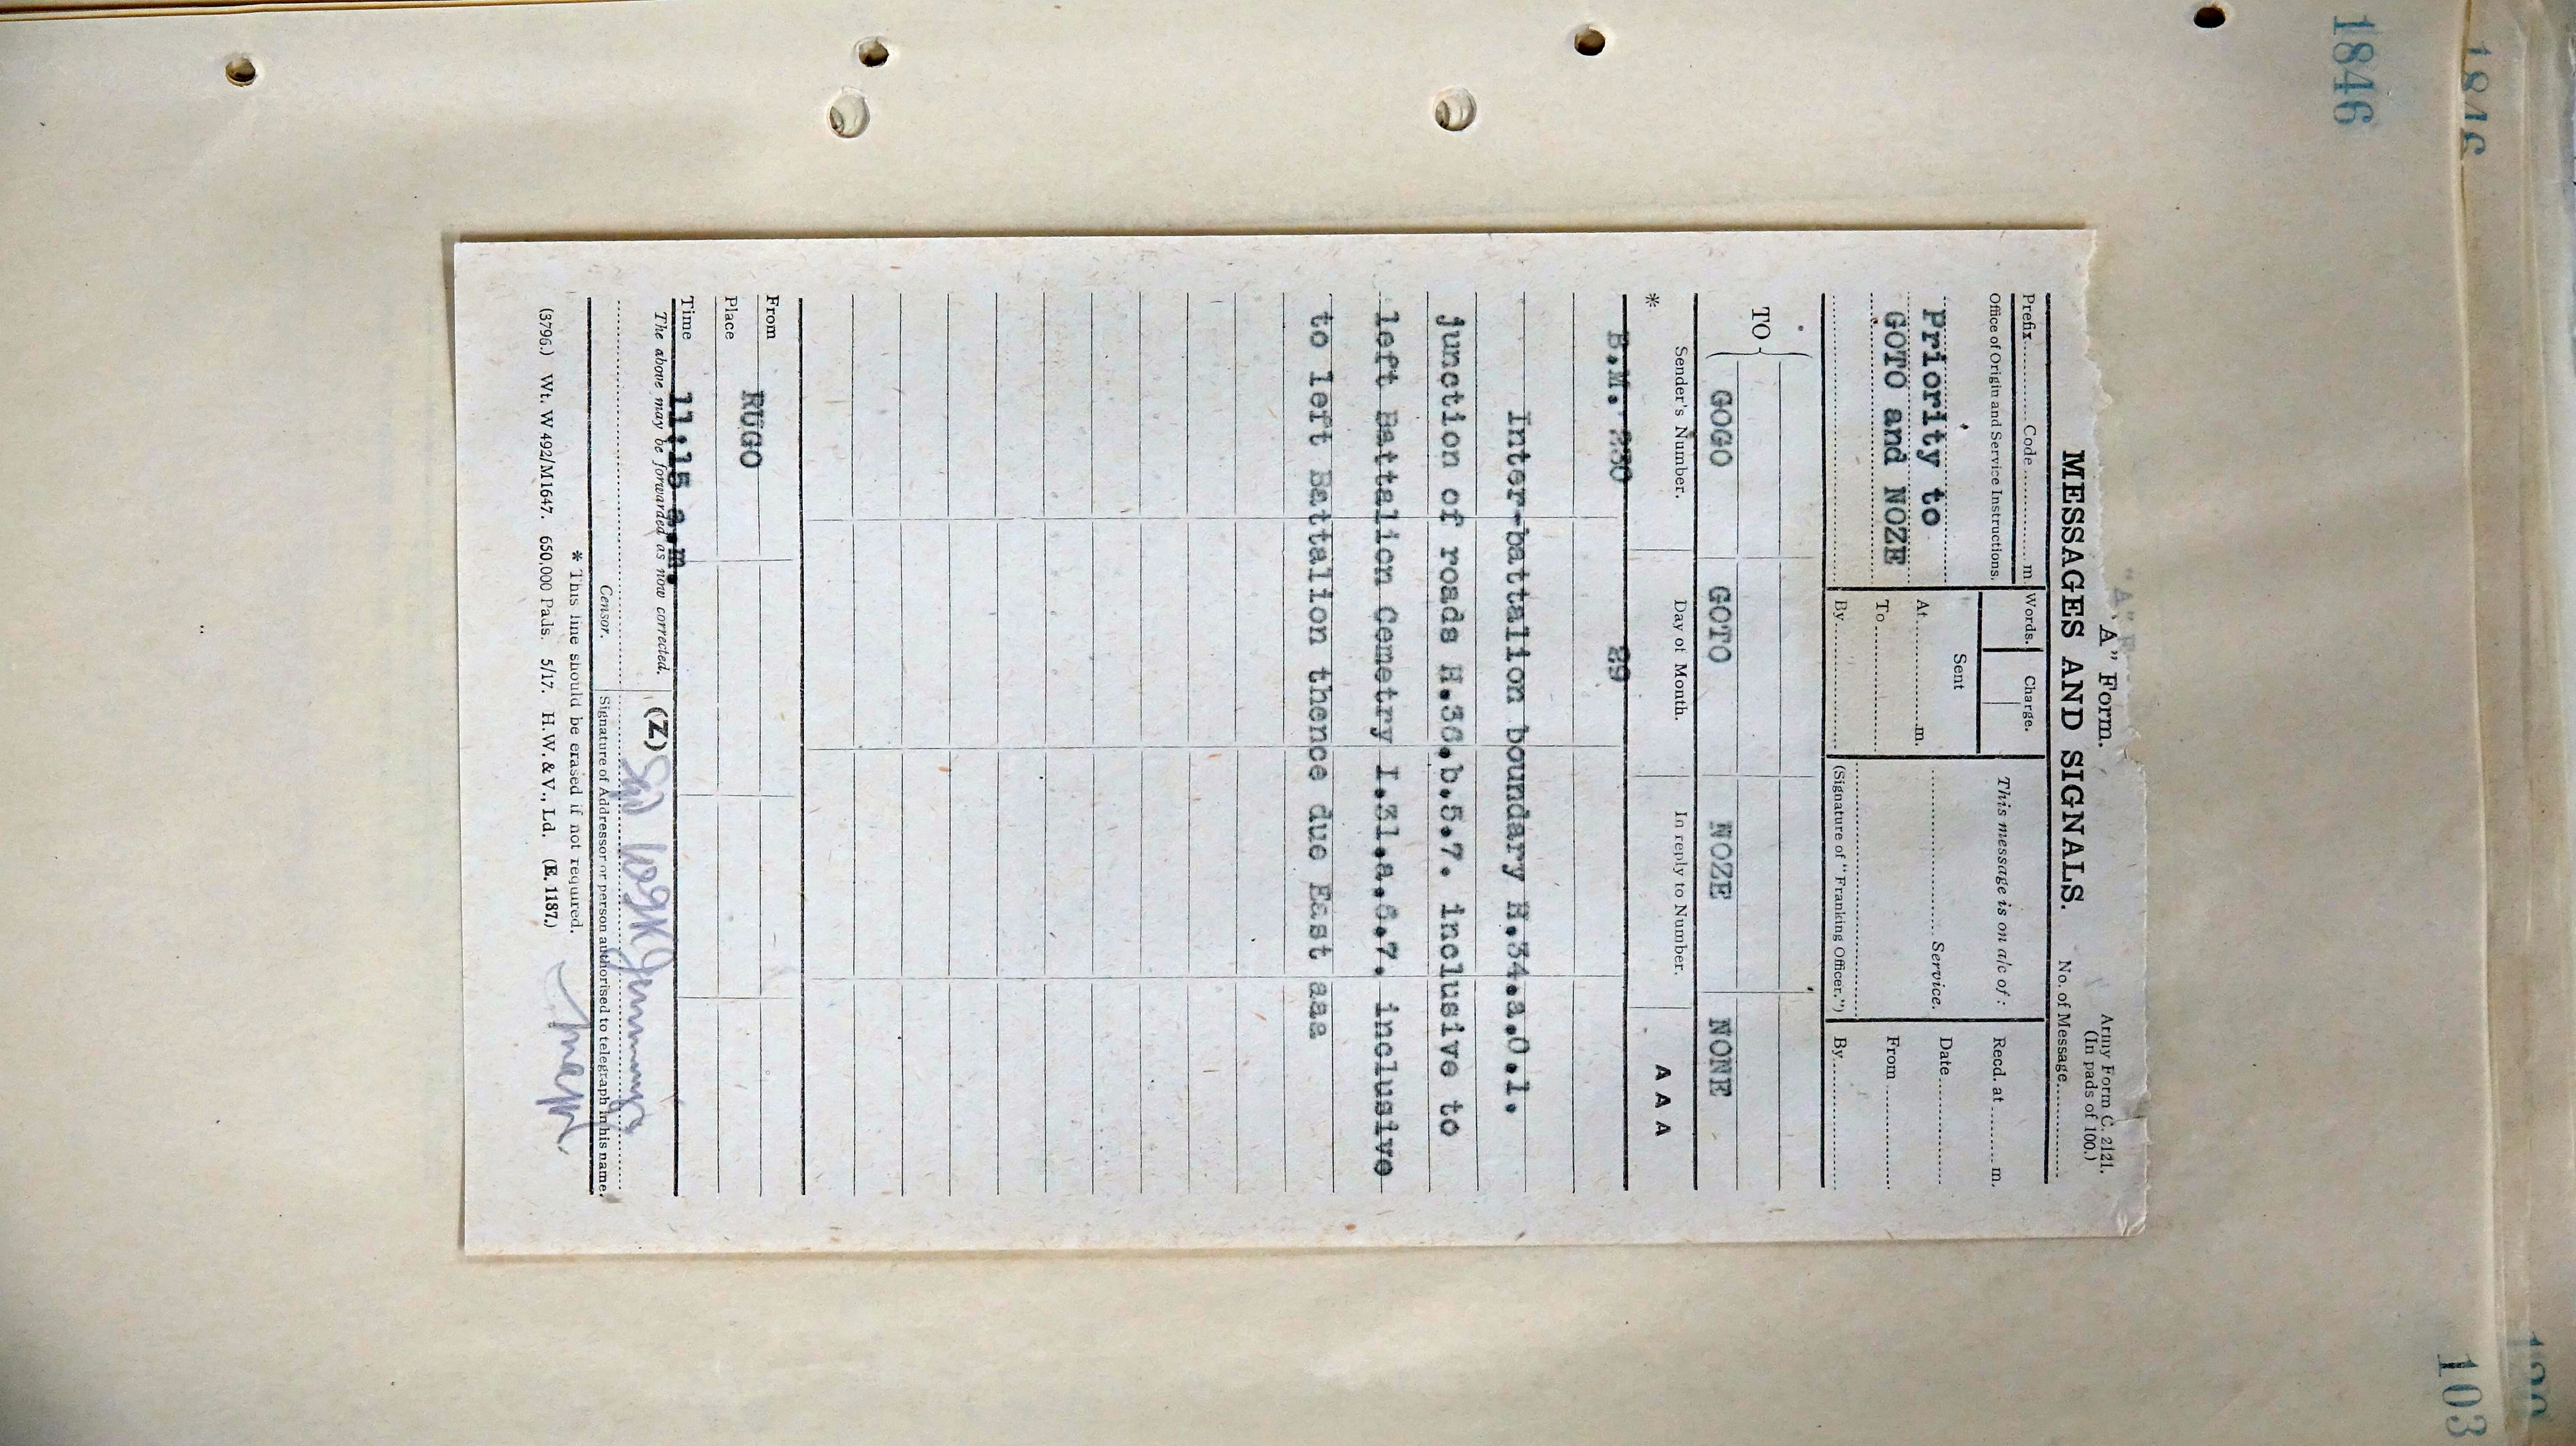 1846
1846
"A" Form.
Army Form C. 2121.
(In pads of 100.)
MESSAGES AND SIGNALS.
No. of Message
Prefix Code m
Words.
Charge.
This message is on a/c of:
Recd. at m.
Office of Origin and Service Instructions.
Sent
Service.
Date
Priority to
At m.
From
GOTO and NOZE
To
By
(Signature of "Franking Officer.")
By
TO
GOGO GOTO NOZE NONE
Sender's Number.
Day of Month.
In reply to Number.
A A A
*
B.M. 230 29
Inter-battalion boundary H.34.a.0.1.
junction of roads H.36.b.5.7. inclusive to
left Battalion Cemetry I.31.a.6.7. inclusive
to left Battalion thence due East aaa
From
RUGO
Place
Time
11.15 a.m.
The above may be forwarded as now corrected.
(Z)
Censor.
Signature of Addressor or person authorised to telegraph in his name.
* This line should be erased if not required.
(3796.) Wt. W 492/M1647. 650,000 Pads. 5/17. H.W. & V., Ld. (E. 1187.)
103